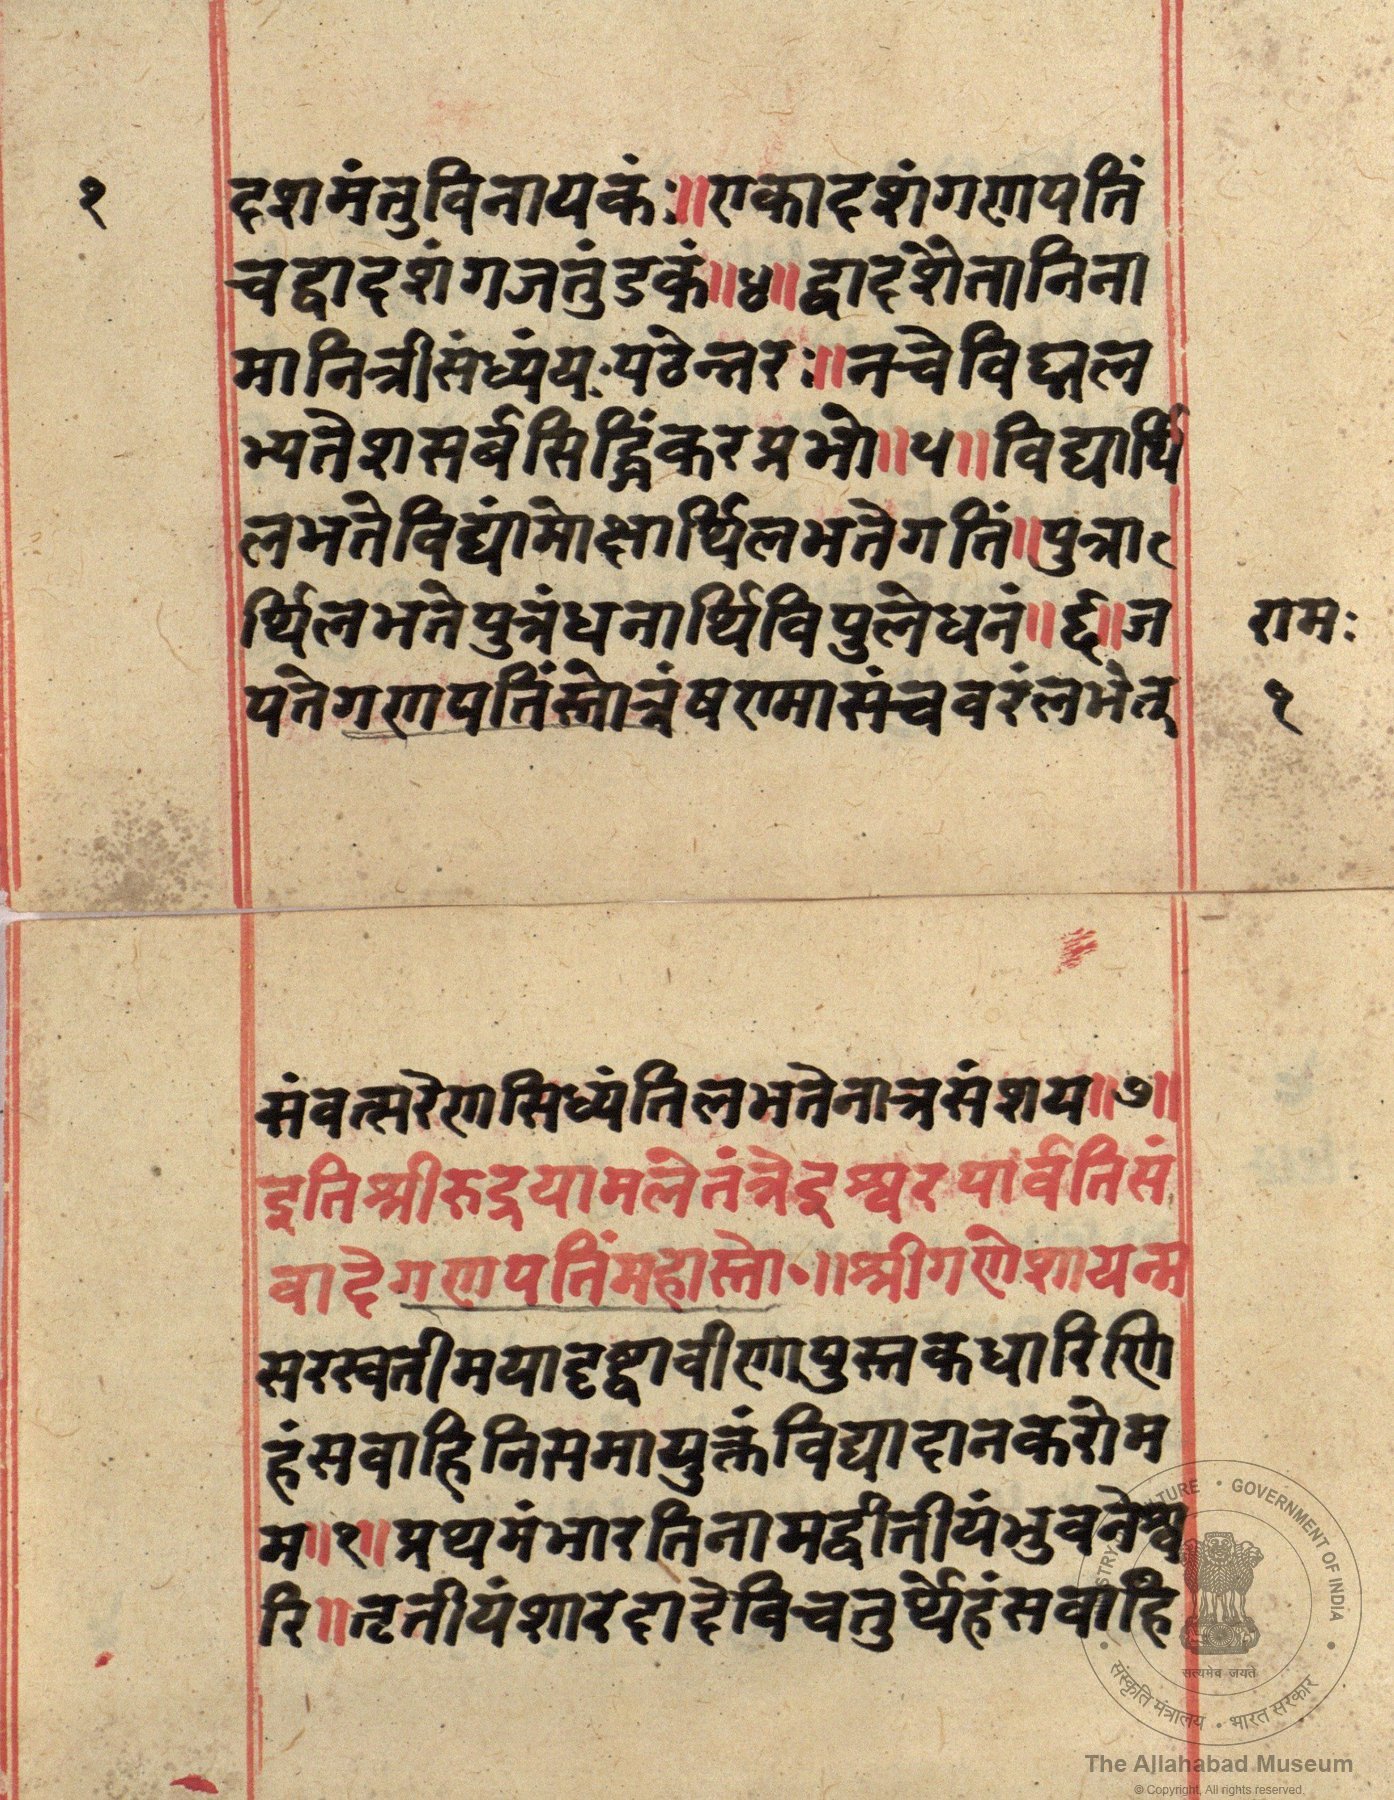 १
दशमंतुविनायकंः॥एकादशंगणपतिं
चद्वादशंगजतुंडकं॥४॥द्वादशैतानिना
मानित्रीसंध्यंयःपठेन्नरः॥नचवैविघ्नल
भ्यतेशसर्बसिद्धिंकरप्रभो॥५॥विद्यार्थि
लभतेविद्यांमोक्षार्थिलभतेगतिं॥पुत्रा
र्थिलभतेपुत्रंधनार्थिविपुलेधनं॥६॥ज
रामः
पतेगणपतिंस्तोत्रंषण्मासंचवरंलभेत्
१
संवत्सरेणसिध्यंतिलभतेनात्रसंशय॥७॥
इतिश्रीरुद्रयामलेतंत्रेइश्वरपार्वतिसं
वादेगणपतिंमहास्तो॰॥श्रीगणेशायन्म
सरस्वतीमयादृष्ट्वावीणापुस्तकधारिणि
हंसवाहिनिसमायुक्तंविद्यादानकरोम
म॥१॥प्रथमंभारतिनामद्वीतीयंभुवनेश्व
रि॥तृतीयंशारदादेविचतुर्थेहंसवाहि
MINISTRY OF CULTURE • GOVERNMENT OF INDIA
सत्यमेव जयते
संस्कृति मंत्रालय • भारत सरकार
The Allahabad Museum
© Copyright, All rights reserved.